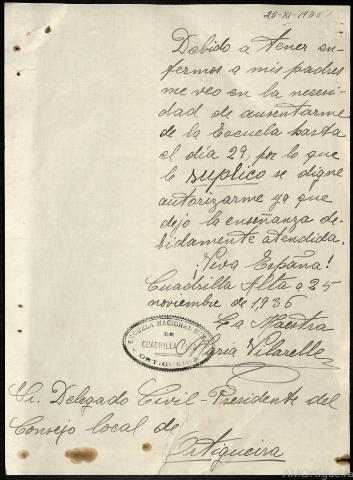 25-XI-1936
Debido a tener en-
fermos a mis padres
me veo en la necesi-
dad de ausentarme
de la Escuela hasta
el día 29, por lo que
le suplico se digne
autorizarme ya que
dejo la enseñanza de-
bidamente atendida.
¡Viva España!
Cuadrilla Alta a 25
noviembre de 1,936
La Maestra
María Vilarelle
ESCUELA NACIONAL
DE
CUADRILLA
ORTIGUEIRA
Sr. Delegado Civil-Presidente del
Consejo local de
Ortigueira
AMOrtigueira